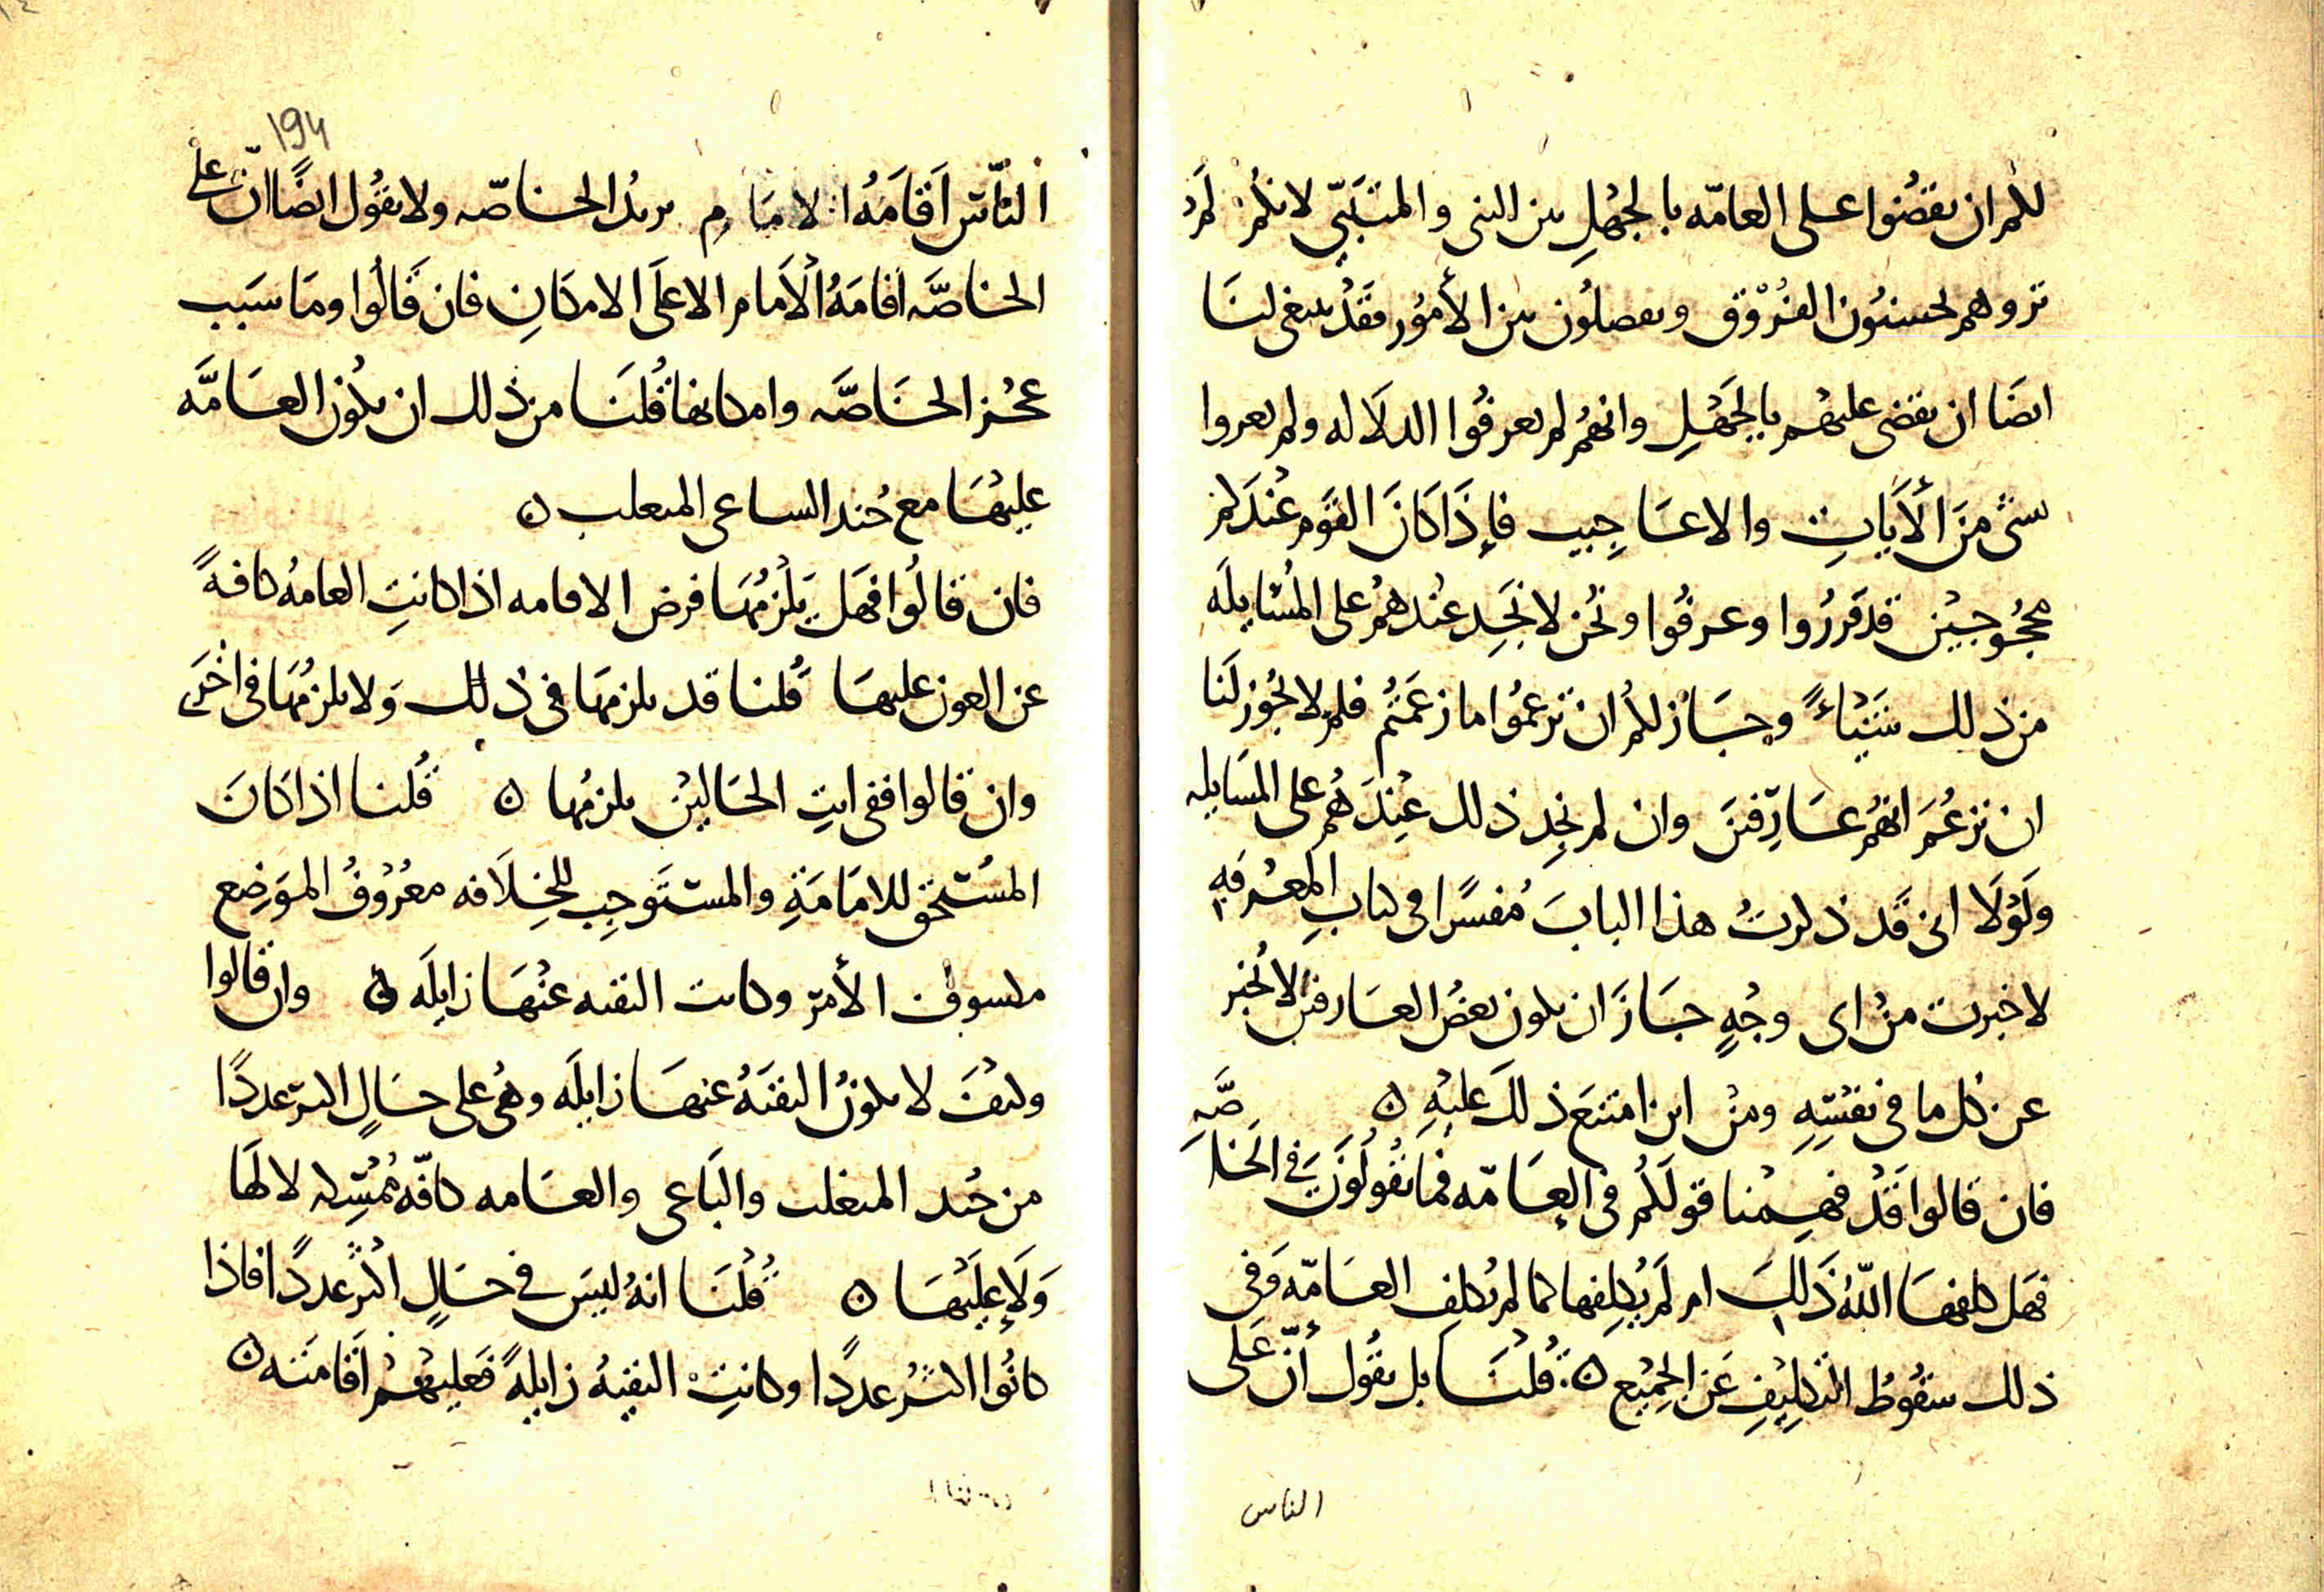 لكم ان تقضوا على العامّه بالجَهْلِ بين النبى والمتنَبّى لانكم لم
تروهم يحسنُون الفُرُوْق ويفصلُون بين الأمُور فقَدْ ينبغى لنَا
ايضَا ان نقضى عليهْم بالجَهْلِ وانهُم لم يعرفُوا الدلَاله ولم يعروا
شىْ مِنَ الأَيَاتِ والاعَاجِيبِ فإِذَا كَانَ القوَم عْندَكم
محُجُوجيْن قد قَررُوا وعرفُوا ونُحن لا نَجَدِ عنْدهُم على المُسْايلَه
من ذلِك شَيْأً وجَازَ لكُم ان تَزعمُوا ما زعَمتُم فلم لا يجُوز لَنا
ان نزعُمَ انهُم عَارِفنَ وان لم نجِد ذلك عِنْدَهُم على المسَايله
ولَوْلَا انى قَد ذكرتُ هذا البابَ مُفسًرا فى كتابِ المعْرفَهِ
لاخبرت منْ اى وجْهٍ جَازَ ان يكون بعضُ العَارفين لا نُخبر
عن كل ما فى نفسْهِ ومنْ اين امتنعَ ذلكَ عليْهِ ٥
فان قالوا قَدْ فهمْنا قولَكُم فى العَامّه فمَا تَقُولُوْنَ فى الخَاصَّهِ
فهَل كلفهَا اللّهُ ذَلِكَ ام لَم يُكلِفها كما لم يُكلفِ العَامّهَ وَفى
ذلك سقُوطُ التكلِيْفِ عَن الجميْع ٥ قُلنَا بل نقُول انّ عَلى
الناس
١٩٤
النّاسِ اَقَامَهُ الامَامِ نريدُ الخاصّه ولا نقُول ايضًا انّ على
الخاصَّه اقامَهُ الأَمام الا علَى الامكَانِ فان قَالُوا ومَا سبَب
عجْز الخَاصَّه وامكانها قُلنَا من ذلك ان يكُون العَامَّه
عليهَا مع جُند الباغى المتغلب ٥
فان قالُوا فهَل يَلْزمُهَا فرض الاقامه اذا كانتِ العامهُ كافهً
عن العون عليهَا قُلنا قد يلزمهَا فى ذلِك وَلا يلزمُهَا فى اخْرَى
وان قالوا ففى ايتِ الحَاليْن يلزمُها ٥ قُلنا اذا كانَ
المسْتحق للامَامَةِ والمستَوجِب للخِلَافه معْرُوْفُ الموَضِع
مكسوف الأمرَ وكانت التقيه عنْهَا زايلَه ٥ وان قالوا
وكيْفَ لا يكونُ التقيَهُ عنهَا زايلَه وهىُ على حَالٍ اكثر عددًا
من جُند المتغلب والبَاغى والعَامه كافّه مُمسْكه لا لَهَا
وَلَا عليْهَا ٥ قُلْنَا انهُ ليسَ فى حَالٍ اكْثر عددًا فاذا
كانُوا اكثرُ عددًا وكانتِ التقيهُ زايلهً فعليهْم اقَامتَه ٥